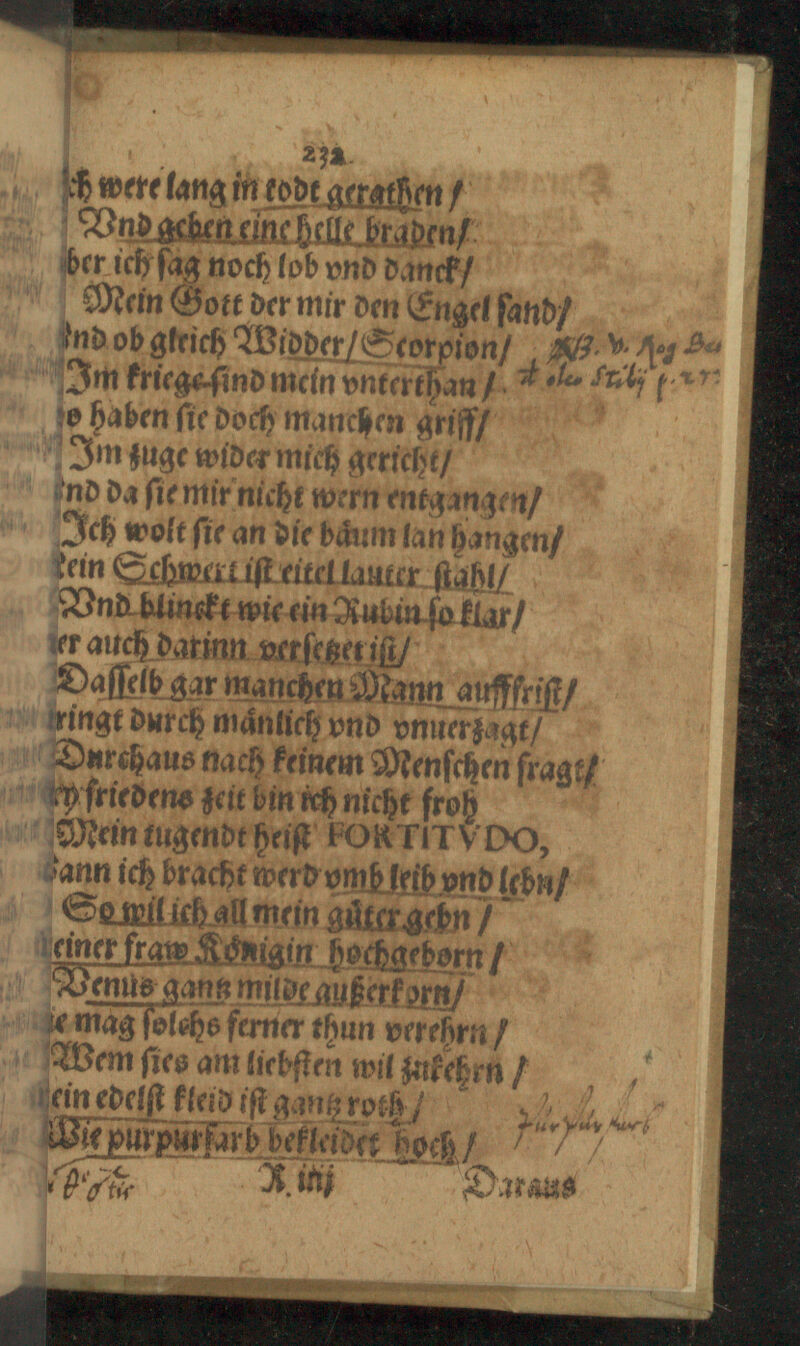 232
ch were lang in todt gerathen /
Vnd geben eine helle braden/
ber ich sag noch lob vnd danck/
Mein Gott der mir den Engel sand/
nd ob gleich Widder/Scorpion/
Im kriege sind mein vnterthan /
o haben sie doch manchen griff/
Im zuge wider mich gericht/
nd da sie mir nicht wern entgangen/
Ich wolt sie an die båum lan hangen/
ein Schwert ist eitel lauter stahl/
Vnd blinckt wie ein Rubin so klar/
er auch darinn versetzet ist/
Dasselb gar manchen Mann aufffrist/
ringt durch månlich vnd vnuerzagt/
Durchaus nach keinem Menschen fragt/
ey friedens zeit bin ich nicht froh
Mein tugendt heist FORTITVDO,
ann ich bracht werd vmb leib vnd lebn/
So wil ich all mein gůter gebn /
einer fraw Kőnigin hochgeborn /
Venus gantz milde außerkorn/
ie mag solchs ferner thun verehrn /
Wem sies am liebsten wil zukehrn /
ein edelst kleid ist gantz roth /
Wie purpurfarb bekleidet hoch /
R iiij Daraus